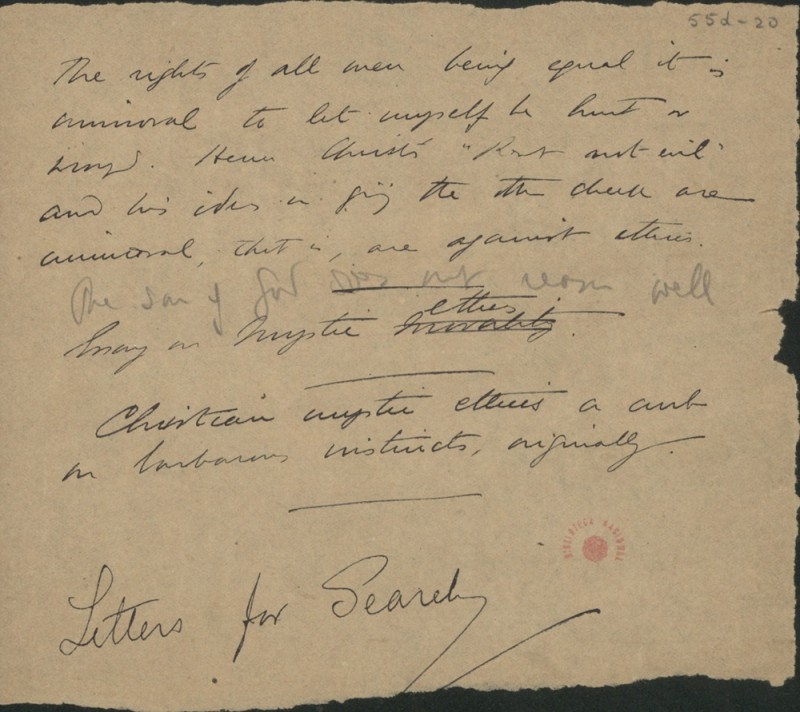 55d-20
The rights of all men being equal it is
immoral to let myself be hurt or
wronged. Hence Christ's "Resist not evil"
and his ideas on giving the other cheek are
immoral, that is, are against ethics.
The son of God does not reason well
Essay on Mystic morality ethics.
Christian mystic ethics a curb
on barbarous instincts, originally.
Letters for Search
BIBLIOTECA NACIONAL